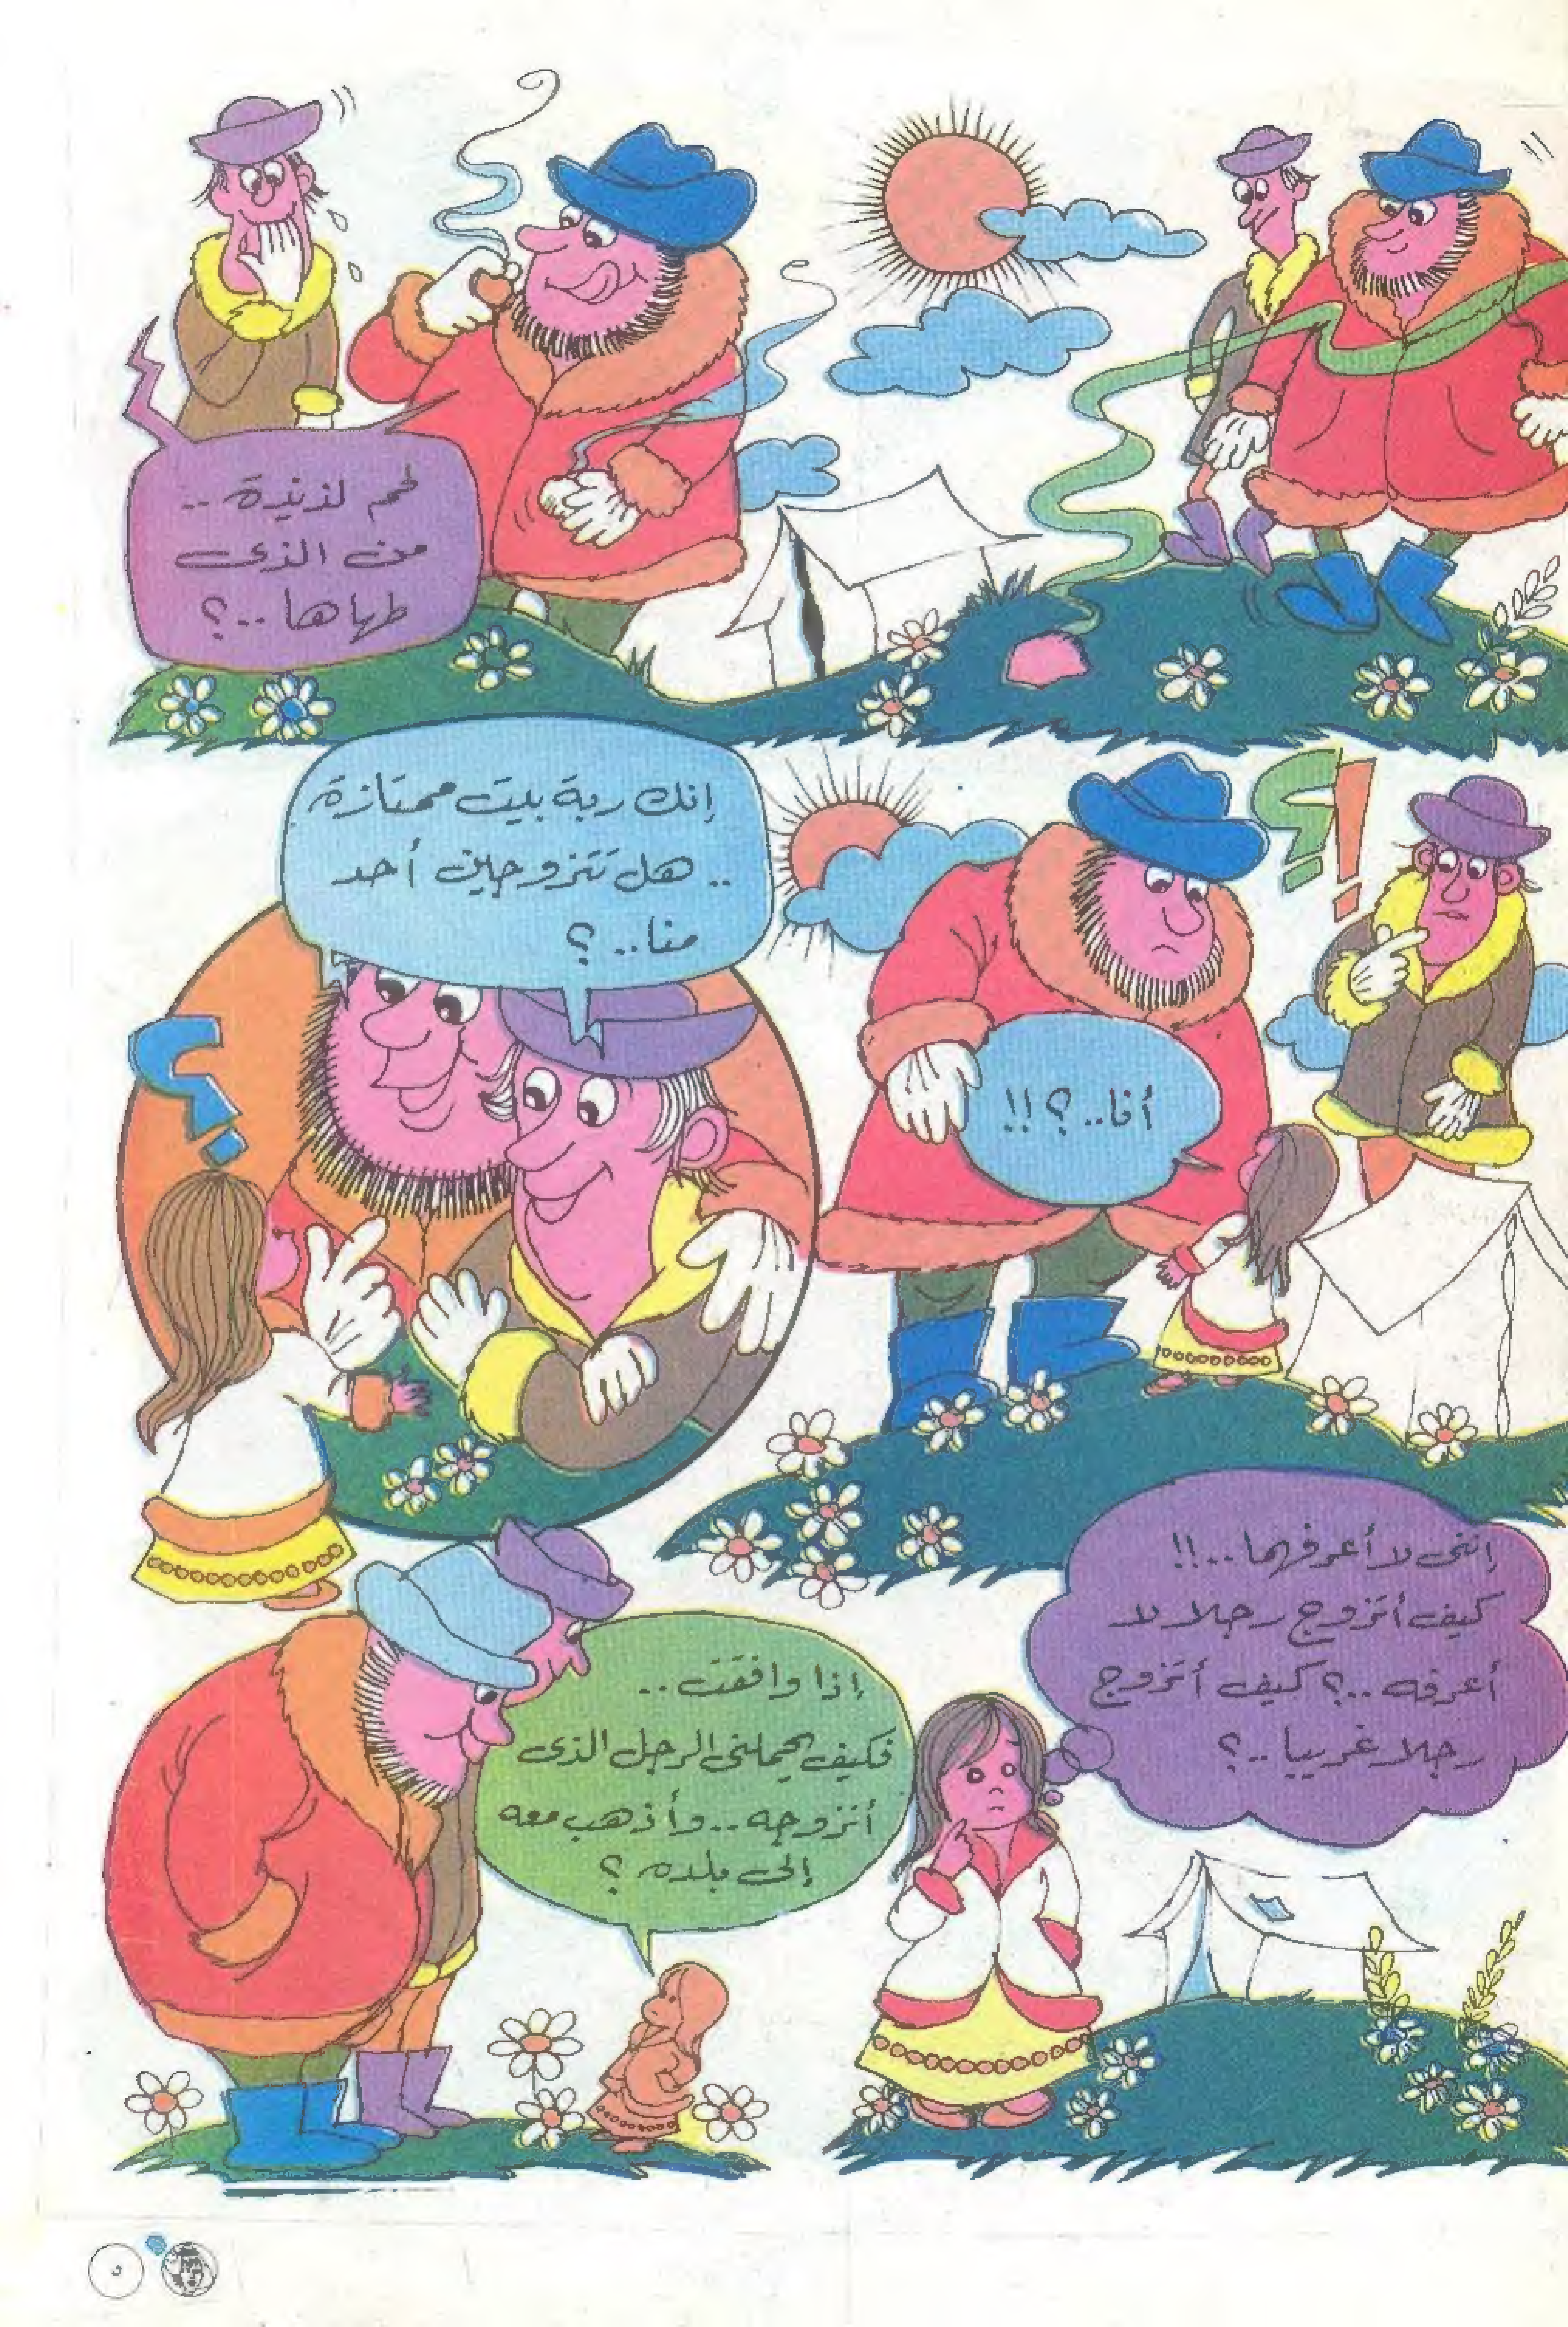 لحم لذيذة ..
من الذى
طهاها ..؟
أنا..؟!!
إنك ربة بيت ممتازة
.. هل تتزوجين أحد
منا.. ؟
إننى لا أعرفهما ..!!
كيف أتزوج رجلا لا
أعرفه ..؟ كيف أتزوج
رجلا غريبا ..؟
إذا وافقت ..
فكيف يحملنى الرجل الذى
أتزوجه .. وأذهب معه
إلى بلده ؟
٥